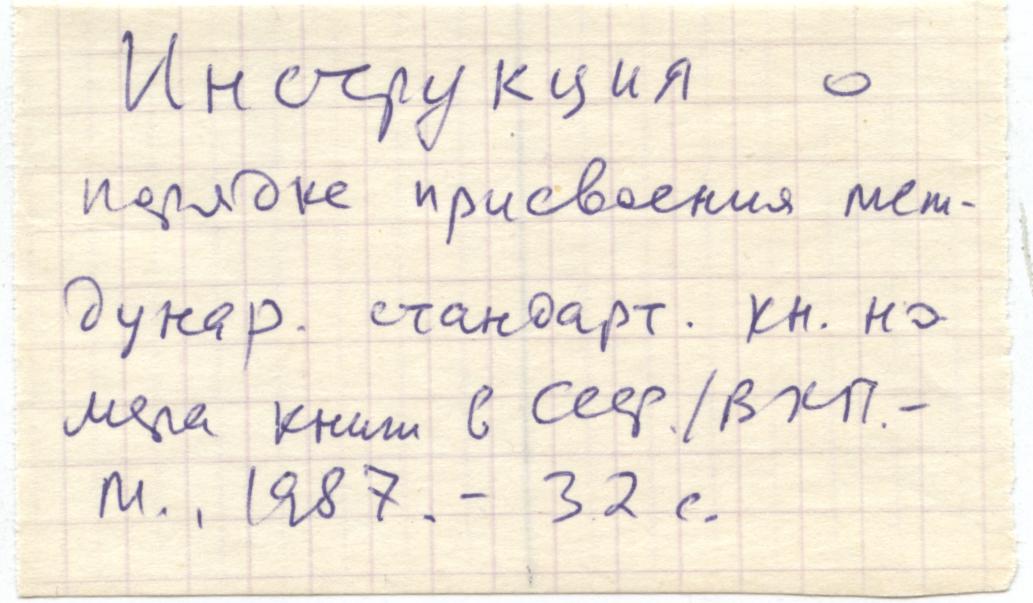 Инструкция о
порядке присвоения меж-
дунар. стандарт. кн. но
мера книги в СССР./ВКП.-
М., 1987. - 32 с.